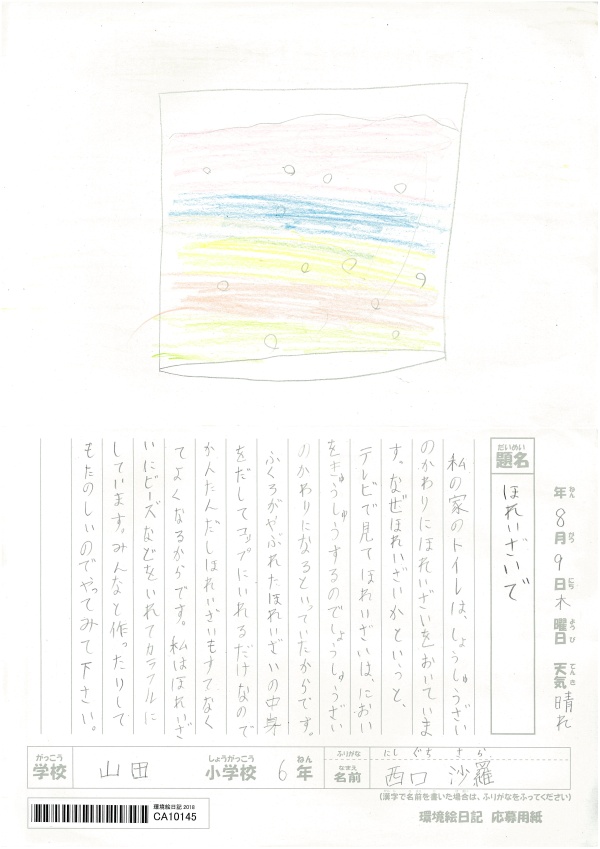 年 8月 9日 木曜日 天気 晴れ
ねん がつ にち ようび てんき
だいめい
題名
ほれいざいで
私の家のトイレは、しょうしゅうざい
のかわりにほれいざいをおいていま
す。なぜほれいざいかというと、
テレビで見てほれいざいは、におい
をきゅうしゅうするのでしょうしゅうざい
のかわりになるといっていたからです。
ふくろがやぶれたほれいざいの中身
をだしてコップにいれるだけなので
かんたんだしほれいざいもすてなく
てよくなるからです。私はほれいざ
いにビーズなどをいれてカラフルに
しています。みんなと作ったりして
もたのしいのでやってみて下さい。
がっこう しょうがっこう ねん
学校 山田 小学校 6年
ふりがな にしぐち さら
なまえ
名前 西口 沙羅
(漢字で名前を書いた場合は、ふりがなをふってください)
環境絵日記 応募用紙
環境絵日記 2018
CA10145